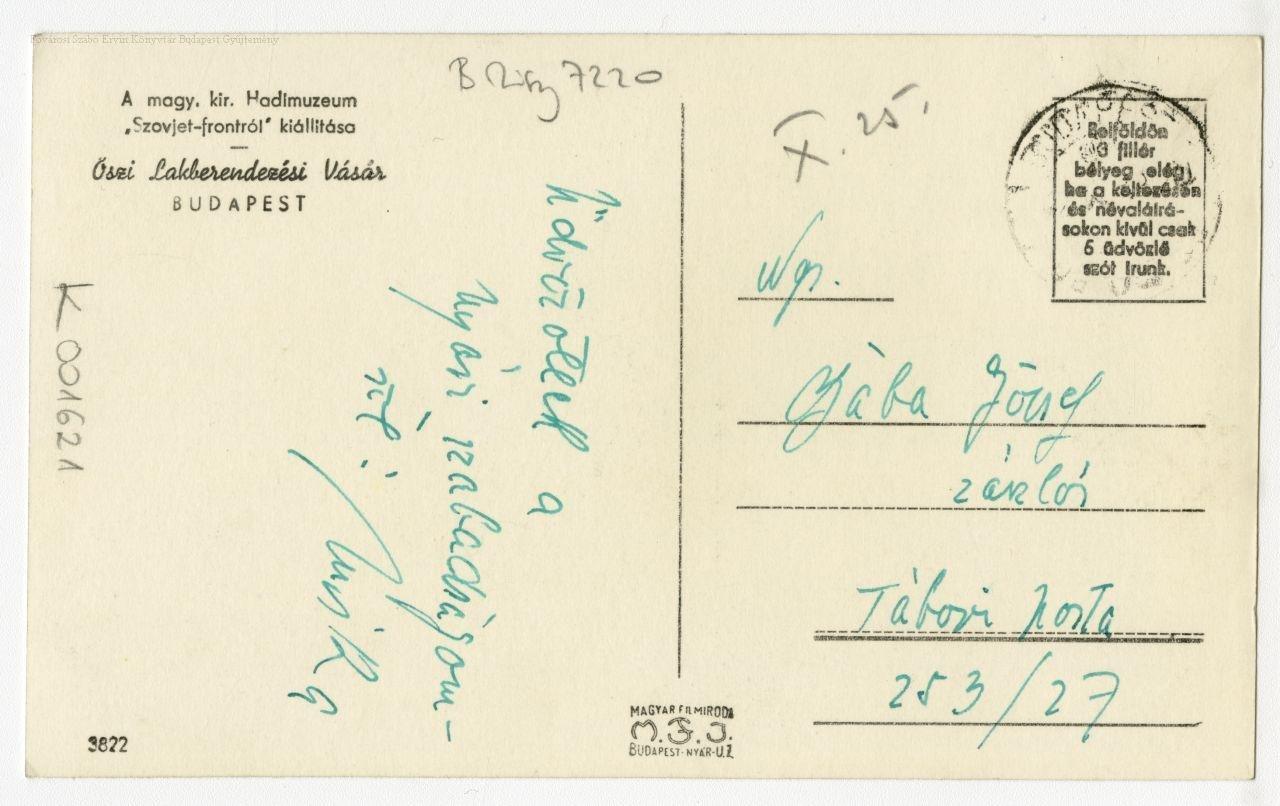 Fővárosi Szabó Ervin Könyvtár Budapest Gyűjtemény
B 7220
A magy. kir. Hadimuzeum
„Szovjet-frontról" kiállitása
Őszi Lakberendezési Vásár
BUDAPEST
K 001621
Üdvözöllek a
nyári szabadságom-
ról:
Miska
3822
MAGYAR FILMIRODA
M.F.I.
BUDAPEST-NYÁR-U.
X. 25.
BUDAPEST
Belföldön
fillér
bélyeg elég
ha a keltezésen
és névaláirá-
sokon kivül csak
5 üdvözlő
szót irunk.
Ngs.
József
zászlós
Tábori Posta
253/27